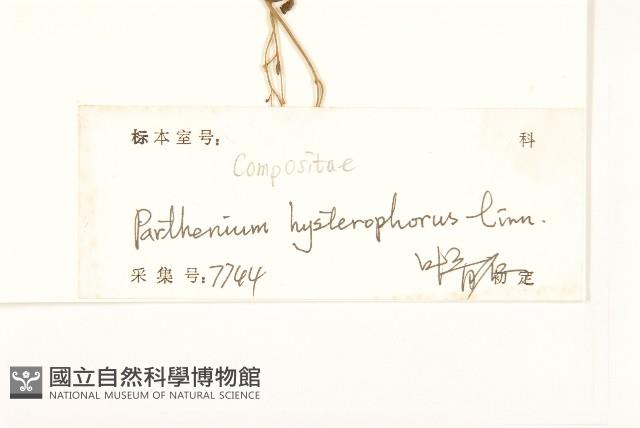 标本室号:
科
Compositae
Parthenium hysterophorus Linn.
采集号:7744
初定
國立自然科學博物館
NATIONAL MUSEUM OF NATURAL SCIENCE